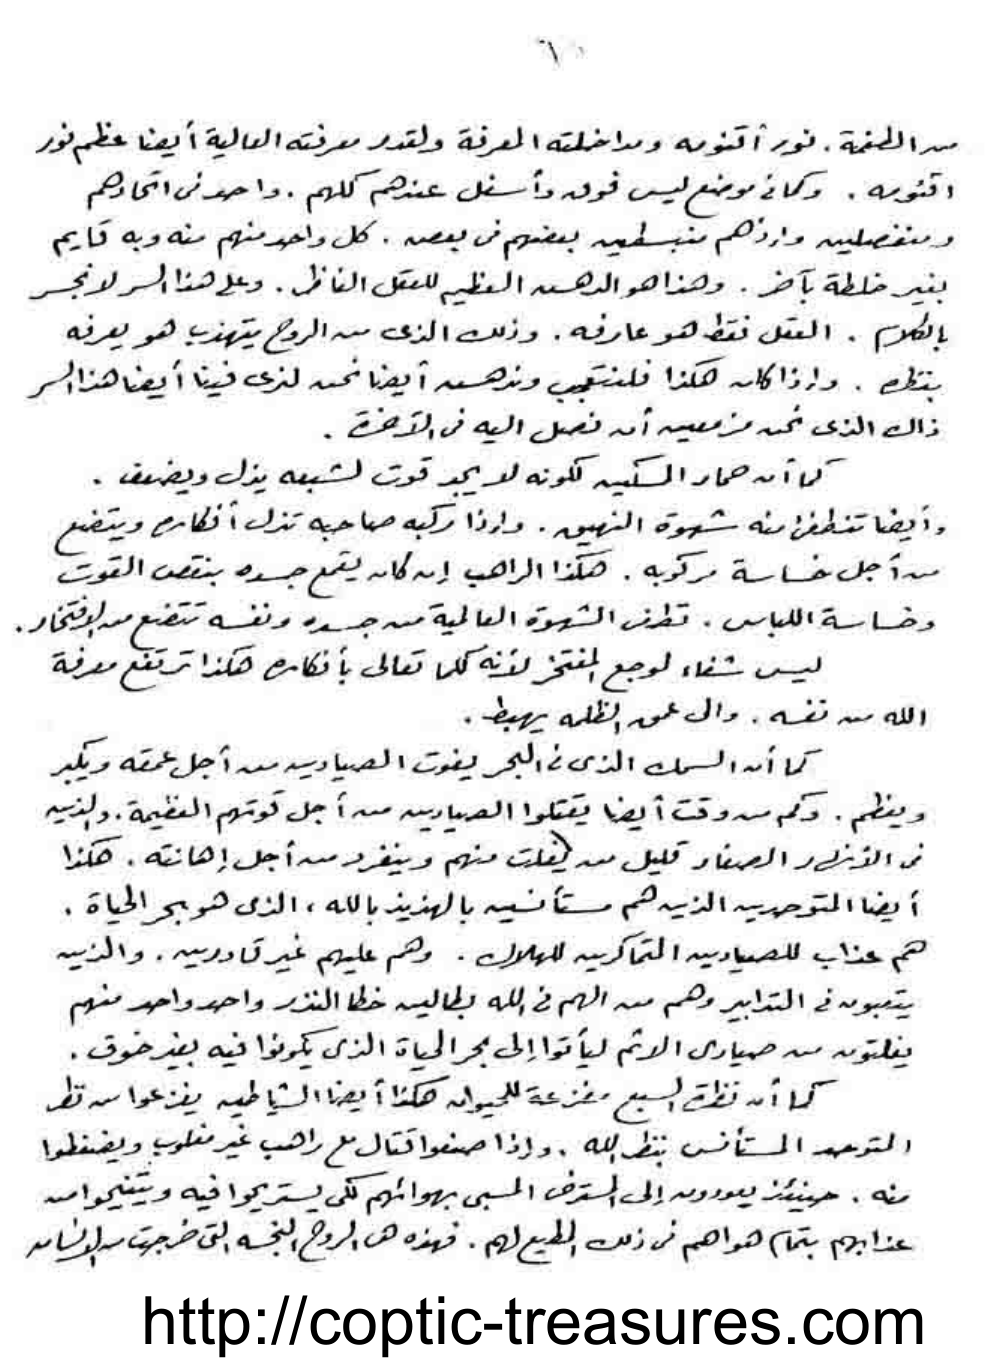 ٦٠
من الطغمة . نور أقنومه ومداخلته المعرفة ولقدر معرفته العالية أيضا عظم نور
اقنومه . وكما في موضع ليس فوق وأسفل عندهم كلهم . واحد في اتحادهم
ومنفصلين وإذ هم منبسطين بعضهم في بعض . كل واحد منهم منه وبه قايم
بغير خلطة بآخر . وهذا هو الدهش العظيم للعقل الناظر . وعلى هذا السر لا نجسر
بالكلام . العقل فقط هو عارفه . وذلك الذى من الروح يتهذب هو يعرفه
بنظره . وإذا كان هكذا فلنتعجب وندهش أيضا نحن لنرى فينا أيضا هذا السر
ذاك الذى نحن مزمعين أن نصل اليه في الآخرة .
كما أن حمار المسكين لكونه لا يجد قوت لشبعه يذل ويضعف .
وأيضا تنطفئ منه شهوة النهيق . وإذا ركبه صاحبه تذل أفكاره ويتضع
من أجل خساسة مركوبه . هكذا الراهب إن كان يقمع جسده بنقص القوت
وخساسة اللباس . تطفئ الشهوة العالمية من جسده ونفسه تتضع من الافتخار .
ليس شفاء لوجع المفتخر لأنه كلما تعالى بأفكاره هكذا ترتفع معرفة
الله من نفسه . والى عمق الظلمه يهبط .
كما أن السمك الذى في البحر يفوت الصيادين من أجل عمقه ويكبر
ويعظم . وكم من وقت أيضا يقتلوا الصيادين من أجل قوتهم العظيمة . والذين
في الأنهار الصغار قليل من يفلت منهم وينفرد من أجل إهانته . هكذا
أيضا المتوحدين الذين هم مستأنسين بالهذيذ بالله ، الذى هو بحر الحياة .
هم عذاب للصيادين المتماكرين للهلاك . وهم عليهم غير قادرين . والذين
يتعبون في التدابير وهم من الهم في الله بطالين خطا النذر واحد واحد منهم
يفلتون من صيادى الاثم ليأتوا إلى بحر الحياة الذى يكونوا فيه بغير خوف .
كما أن نظرة السبع مفزعة للحيوان هكذا أيضا الشياطين يفزعوا من نظر
المتوحد المستأنس بنظر الله . وإذا صنعوا قتال مع راهب غير مغلوب ويضغطوا
منه . حينئذ يعودون إلى المسترخى المسبى بهوائهم لكى يستريحوا فيه ويتنيحوا من
عذابهم بتمام هواهم في ذلك المطيع لهم . فهذه هى الروح النجسه التى خرجت من الانسان
http://coptic-treasures.com